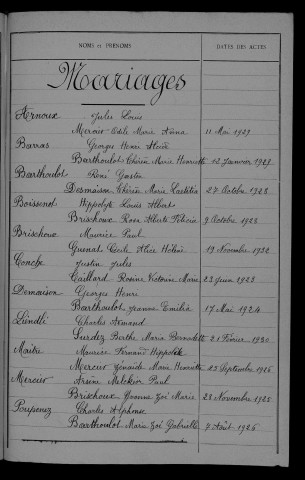 NOMS et PRÉNOMS DATES DES ACTES
Mariages
Arnoux Jules Louis
Mercier Odile Marie Anna 11 Mai 1929
Barras Georges Henri
Barthoulot Thérèse Marie Henriette 12 Janvier 1929
Barthoulot René Gaston
Desmaison Thérèse Marie Laetitia 27 Octobre 1928
Boissenot Hippolyte Louis Albert
Brischoux Rosa Alberte Félicia 9 Octobre 1923
Brischoux Maurice Paul
Guenat Cécile Alice Hélène 19 Novembre 1932
Conche Justin Jules
Taillard Rosine Victoire Marie 23 Juin 1923
Demaison Georges Henri
Barthoulot Jeanne Emilia 17 Mai 1924
Lündli Charles Armand
Surdez Berthe Marie Bernadette 21 Février 1930
Maitre Maurice Fernand Hippolyte
Mercier Zénaïde Marie Henriette 25 Septembre 1926
Mercier Arsène Melchior Paul
Brischoux Yvonne Zoé Marie 28 Novembre 1925
Poupenez Charles Alphonse
Barthoulot Marie Zoé Gabrielle 7 Août 1926